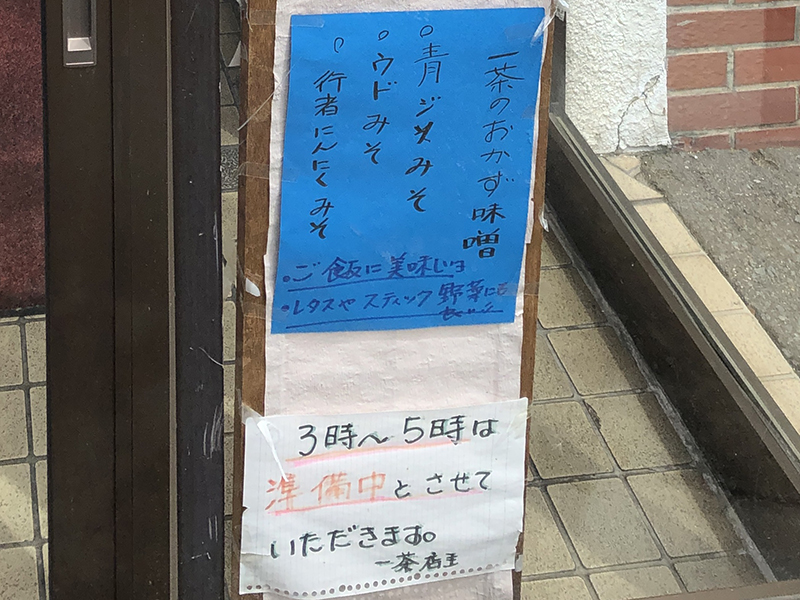 一茶のおかず味噌
○青ジソみそ
○ウドみそ
○行者にんにくみそ
・ご飯に美味しいヨ
・レタスや スティック野菜にも
3時～5時は
準備中とさせて
いただきます。
一茶店主